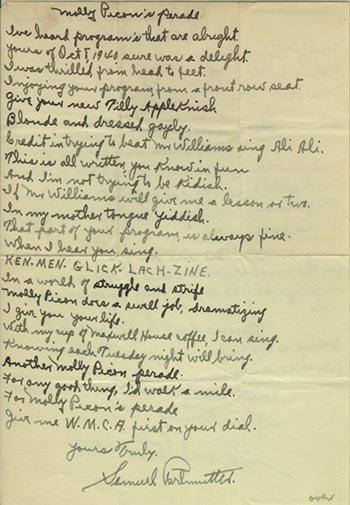 Molly Picon's Perade
I've heard program's that are alright.
Yours of Oct 8, 1940 sure was a delight.
I was thrilled from head to feet.
Injoying your program, from a front row seat.
Give your new Tilly AppleKnish
Blonde and dressed gayly.
Credit in trying to beat Mr Williams sing Ali Ali.
This is all written, you know in fun
And I'm not trying to be Kidish.
If Mr Williams will give me a lesson or two.
In my mother tongue Yiddish.
That part of your program, is always fine.
When I hear you sing.
KEN-MEN-GLICK-LACH-ZINE.
In a world of struggle and strife
Molly Picon does a swell job, dramatizing
I give you your life.
With my cup of Maxwell House coffee, I can sing.
Knowing each Tuesday night will bring.
Another Molly Picon perade.
For any good thing, I'd walk a mile.
For Molly Picon's perade
Give me W.M.C.A. first on your dial.
Yours Truly.
Samuel Perlmutter.
over